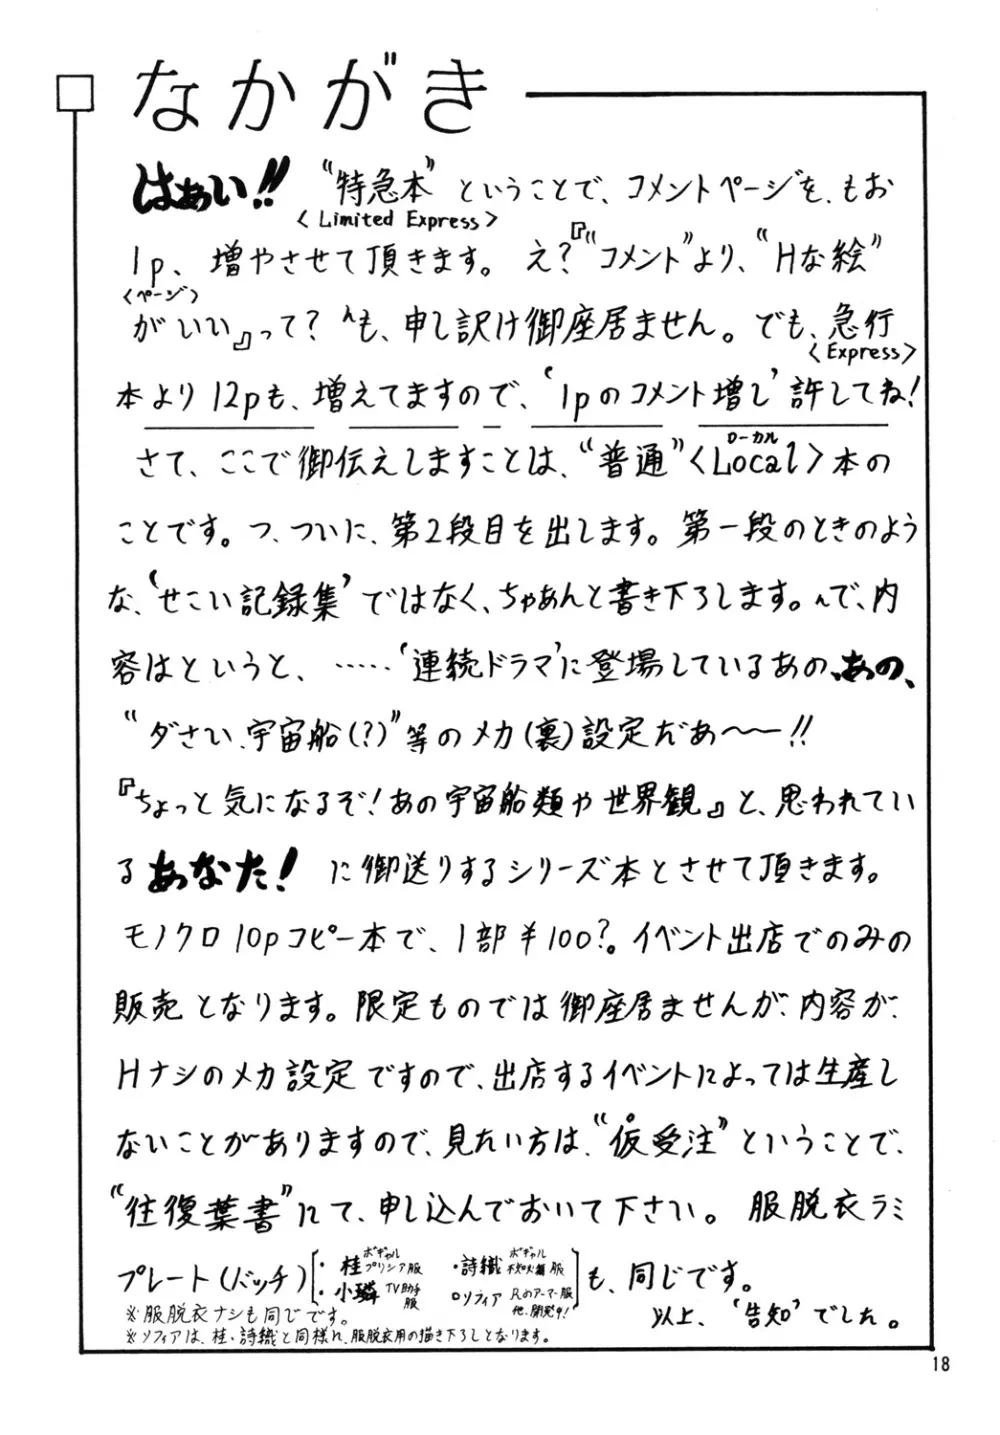 なかがき
はぁい!! “特急本” ということで、コメントページを、もお
<Limited Express>
1p、増やさせて頂きます。え?『“コメント”より、“Hな絵”
<ページ>
がいい』って? へも、申し訳け御座居ません。でも、急行
<Express>
本より12pも、増えてますので、‘1pのコメント増し’許してね!
さて、ここで御伝えしますことは、“普通”<Local>本の
ローカル
ことです。つ、ついに、第2段目を出します。第一段のときのよう
な、‘せこい記録集’ではなく、ちゃあんと書き下ろします。んで、内
容はというと、……‘連続ドラマ’に登場しているあの、あの、
“ダさい、宇宙船(?)”等のメカ(裏)設定だあ〜〜!!
『ちょっと気になるぞ!あの宇宙船類や世界観』と、思われてい
るあなた! に御送りするシリーズ本とさせて頂きます。
モノクロ10pコピー本で、1部¥100?。イベント出店でのみの
販売となります。限定ものでは御座居ませんが、内容が、
Hナシのメカ設定ですので、出店するイベントによっては生産し
ないことがありますので、見たい方は、“仮受注”ということで、
“往復葉書”にて、申し込んでおいて下さい。服脱衣ラミ
プレート(バッチ)[・桂 ボギャル プリシア服 ・詩織 ボギャル 服
・小璘 TV助手服 ○ソフィア Rのアーマー服 他、開発中!]も、同じです。
※服脱衣ナシも同じです。
以上、‘告知’でした。
※ソフィアは、桂・詩織と同様に、服脱衣用の描き下ろしとなります。
18